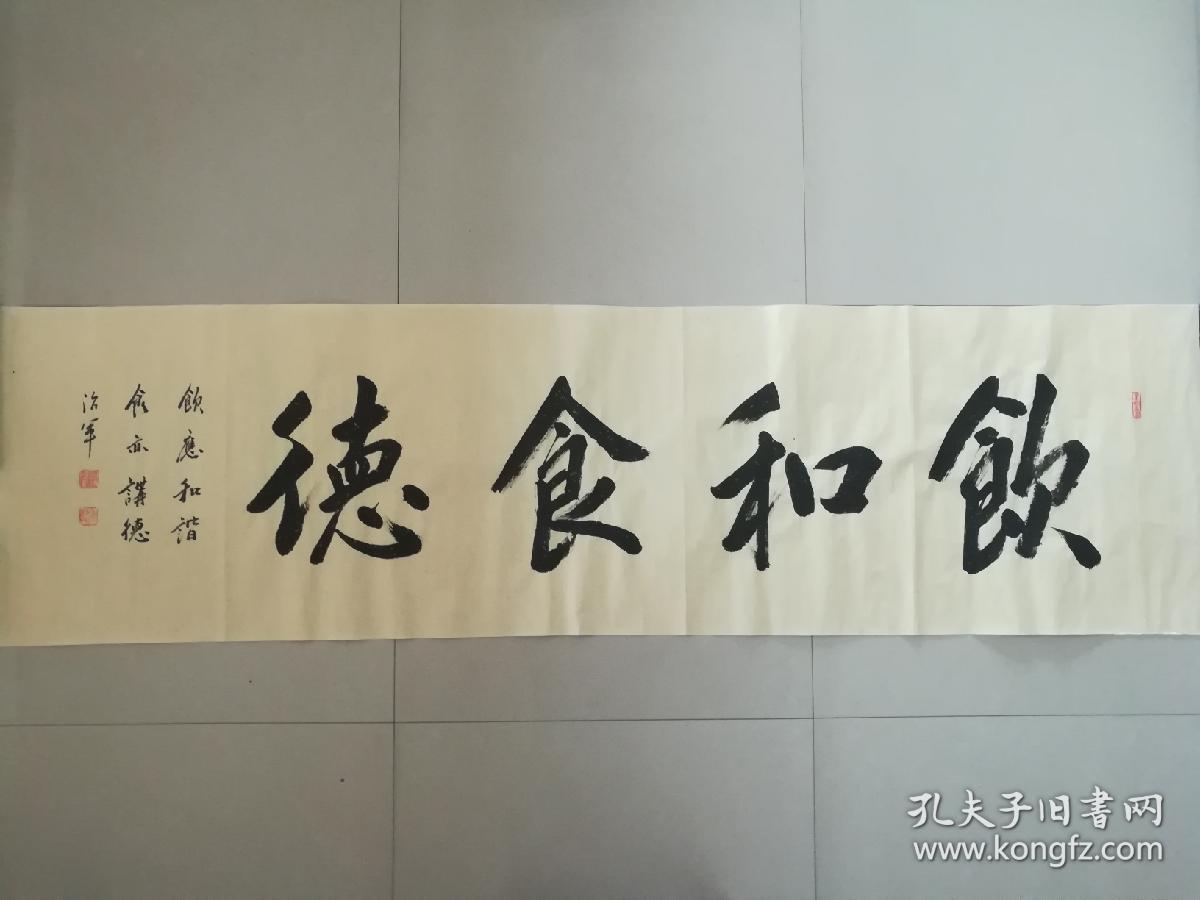 飲和食德
飲應和諧
食亦講德
治軍
孔夫子旧書网
www.kongfz.com